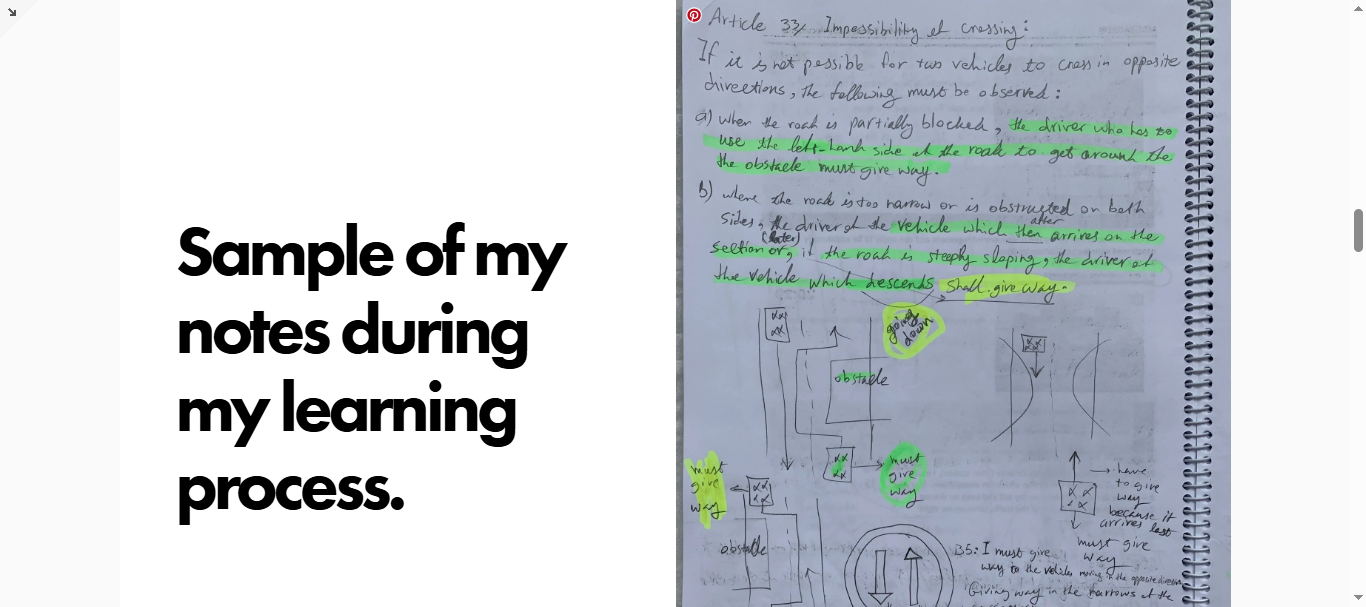 Sample of my
notes during
my learning
process.
Article 33/ Impossibility of crossing:
If it is not possible for two vehicles to cross in opposite
directions, the following must be observed:
a) when the road is partially blocked, the driver who has to
use the left-hand side of the road to get around the
the obstacle must give way.
b) where the road is too narrow or is obstructed on both
sides, the driver of the vehicle which then arrives on the
after
(later)
section or, if the road is steeply sloping, the driver of
the vehicle which descends shall give way.
going
down
obstacle
must
give
way
must
give
way
have
to give
way
because it
arrives last
must give
way
obstacle
B5: I must give
way to the vehicles moving in the opposite direction
Giving way in the narrows at the